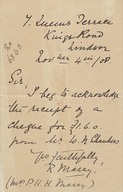 7. Queens Terrace
Kings Road
Windsor
Nov ber 4th/08
Sir,
I beg to acknowledge
the receipt of a
cheque for £1.6.0
from Mr W N Chambers
Yrs faithfully,
R. Massy.
(Mrs P. H. H. Massy)